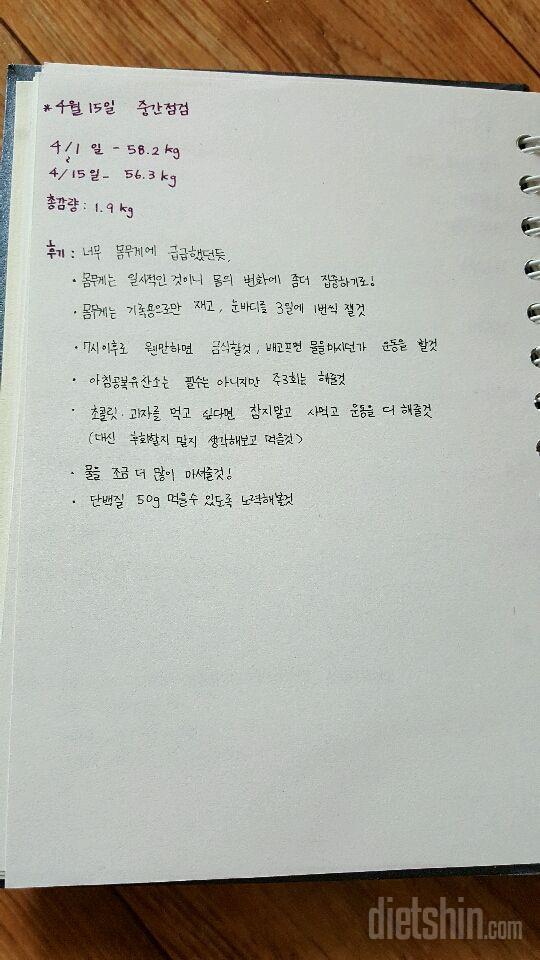 * 4월 15일 중간점검
4/1 일 - 58.2 kg
4/15일 - 56.3 kg
총감량 : 1.9 kg
후기 : 너무 몸무게에 급급했던듯,
· 몸무게는 일시적인 것이니 몸의 변화에 좀더 집중하기로!
· 몸무게는 기록용으로만 재고, 눈바디를 3일에 1번씩 잴것
· 7시이후로 웬만하면 금식할것, 배고프면 물을마시던가 운동을 할것
· 아침공복유산소는 필수는 아니지만 주3회는 해줄것
· 초콜릿·과자를 먹고 싶다면 참지말고 사먹고 운동을 더 해줄것
(대신 후회할지 말지 생각해보고 먹을것)
· 물을 조금 더 많이 마셔줄것!
· 단백질 50g 먹을수 있도록 노력해볼것
dietshin.com